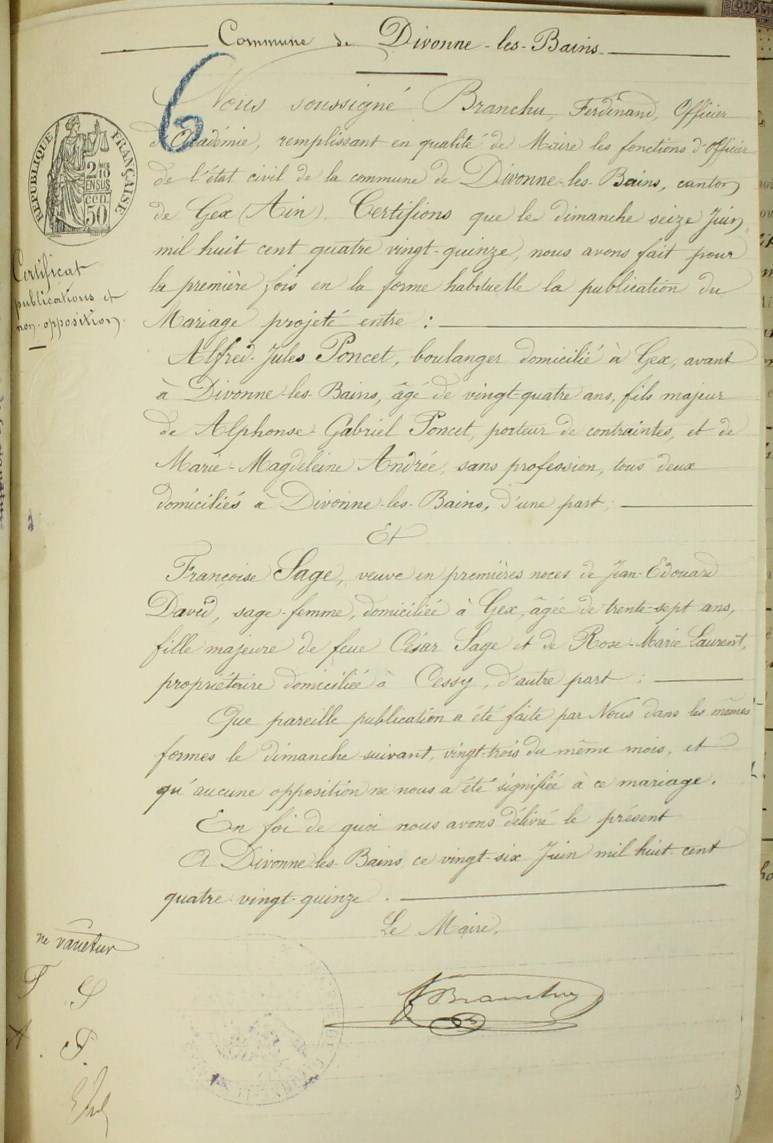 Commune de Divonne-les-Bains.
6
Nous soussigné Branchu, Ferdinand, Officier
d'Académie, remplissant en qualité de Maire les fonctions d'Officier
de l'état civil de la commune de Divonne-les-Bains, canton
de Gex (Ain). Certifions que le dimanche seize Juin
mil huit cent quatre vingt-quinze, nous avons fait pour
la première fois en la forme habituelle la publication du
Mariage projeté entre :
RÉPUBLIQUE FRANÇAISE
2/10 EN SUS
50 cen
Certificat
publications et
non-opposition.
Alfred-Jules Poncet, boulanger domicilié à Gex, avant
à Divonne-les-Bains, âgé de vingt-quatre ans, fils majeur
de Alphonse Gabriel Poncet, porteur de contraintes, et de
Marie-Magdeleine Andrée, sans profession, tous deux
domiciliés à Divonne-les-Bains, d'une part ;
Et
Françoise Sage, veuve en premières noces de Jean-Edouard
David, sage-femme, domiciliée à Gex, âgée de trente-sept ans,
fille majeure de feue César Sage et de Rose-Marie Laurent,
propriétaire domiciliée à Cessy, d'autre part :
Que pareille publication a été faite par Nous dans les mêmes
formes le dimanche suivant, vingt-trois du même mois, et
qu'aucune opposition ne nous a été signifiée à ce mariage.
En foi de quoi nous avons délivré le présent
A Divonne-les-Bains ce vingt-six Juin mil huit cent
quatre vingt-quinze.
Le Maire,
Branchu
ne varietur
F S
A. P.